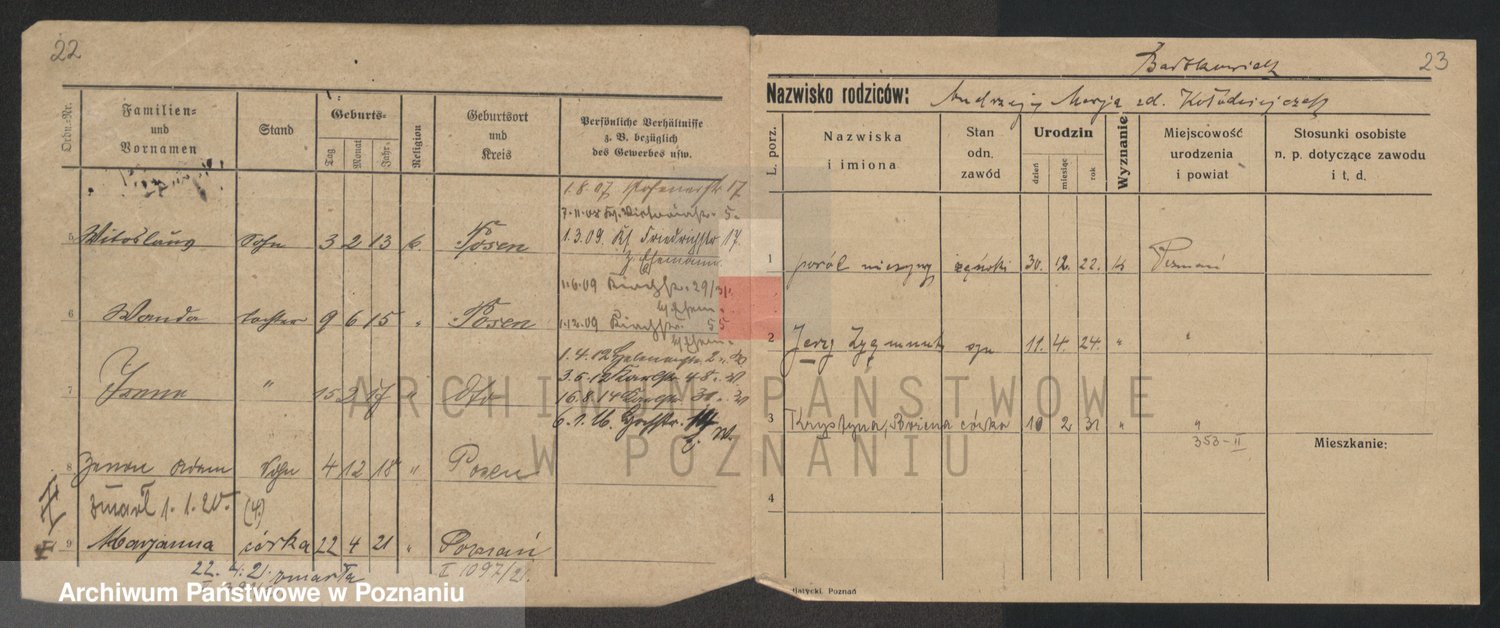 22
Ordn.-Nr.
Familien- und Vornamen
Stand
Geburts-
Tag Monat Jahr
Religion
Geburtsort und Kreis
Persönliche Verhältnisse z. B. bezüglich des Gewerbes usw.
1.8.07 Posenerstr. 17
7.11.08 Victoriastr. 5
5 Witoslaus Sohn 3 2 13 k. Posen
1.3.09. Friedrichstr 17
1.6.09 Kirchstr. 29/31.
6 Wanda Tochter 9 6 15 " Posen
1.12.09 Kirchstr. 55
1.4.12 Helenenstr. 2
7 Irena " 15 2 17 " dto
3.5.12 Karlstr. 48.
16.8.14 Karlstr. 30.
6.1.16 Hochstr. 14
8 Zenon Adam Sohn 4 12 18 " Posen
zmarł 1.1.20. (4.)
9 Marjanna córka 22 4 21 " Poznań
22. 4. 21. zmarła
I 1097/21.
23
Bartkowiak
Nazwisko rodziców: Andrzej i Marja zd. Kołodziejczak
L. porz.
Nazwiska i imiona
Stan odn. zawód
Urodzin
dzień miesiąc rok
Wyznanie
Miejscowość urodzenia i powiat
Stosunki osobiste n. p. dotyczące zawodu i t, d.
1 poród nieżywy żeński 30. 12. 22. k Poznań
2 Jerzy Zygmunt syn 11. 4. 24. " "
3 Krystyna, Bożena córka 10 2 31 " "
353-II
Mieszkanie:
4
Poznań
ARCHIWUM PAŃSTWOWE
W POZNANIU
Archiwum Państwowe w Poznaniu